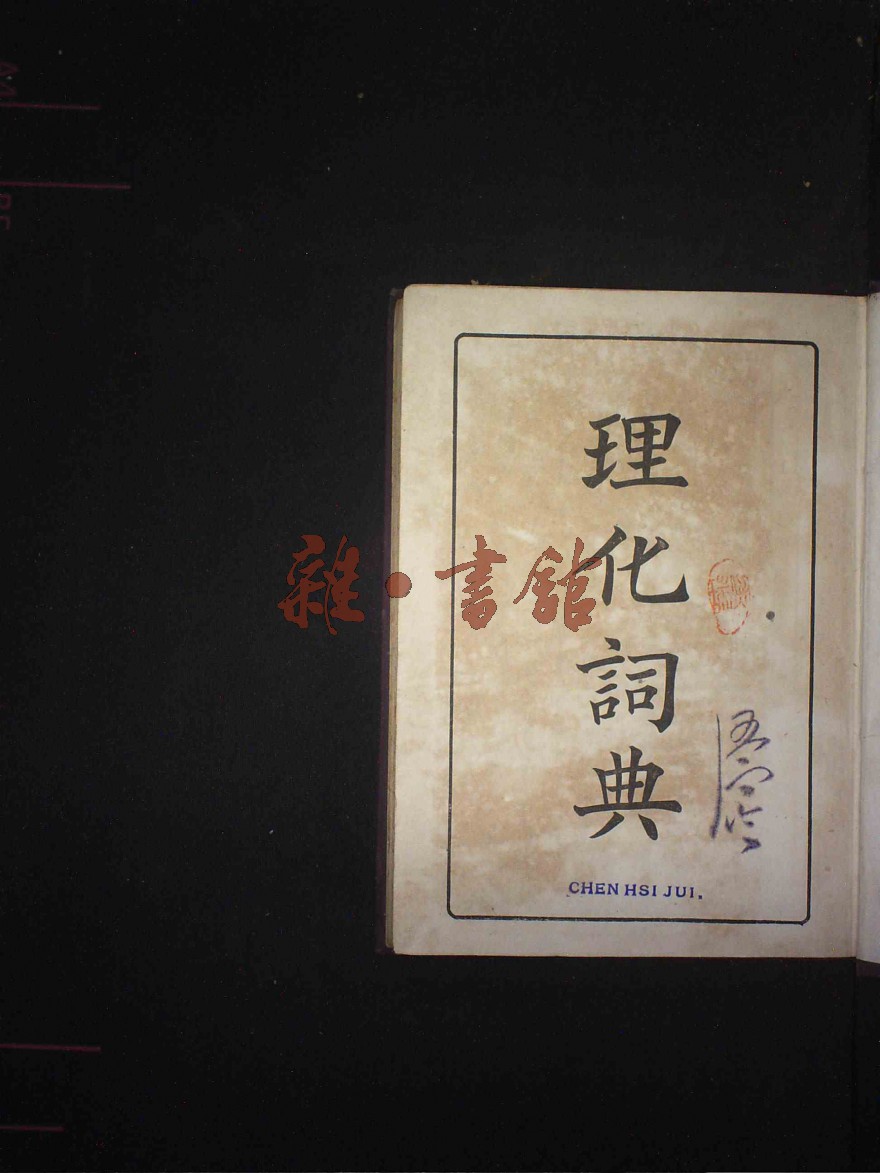 理化詞典
CHEN HSI JUI.
雜·書館